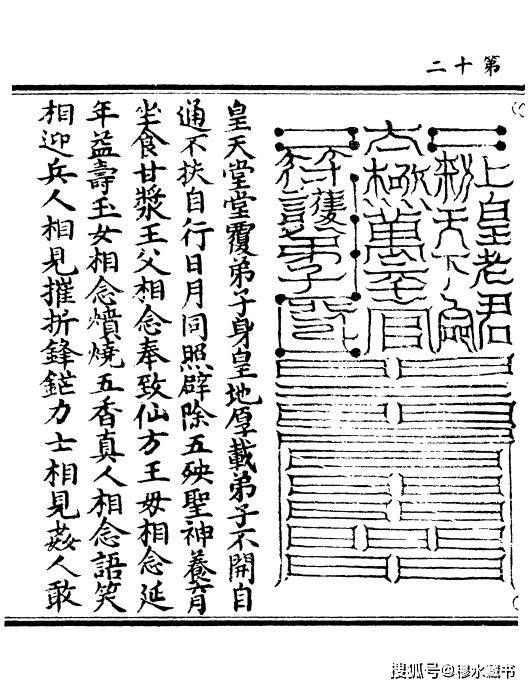 第十二
上皇老君
皇天堂堂覆弟子身皇地厚載弟子不開自
通不扶自行日月同照辟除五殃聖神養育
坐食甘漿王父相念奉致仙方王母相念延
年益壽玉女相念燌燒五香真人相念語笑
相迎兵人相見摧折鋒鋩力士相見姦人敢
搜狐号@穆水藏书